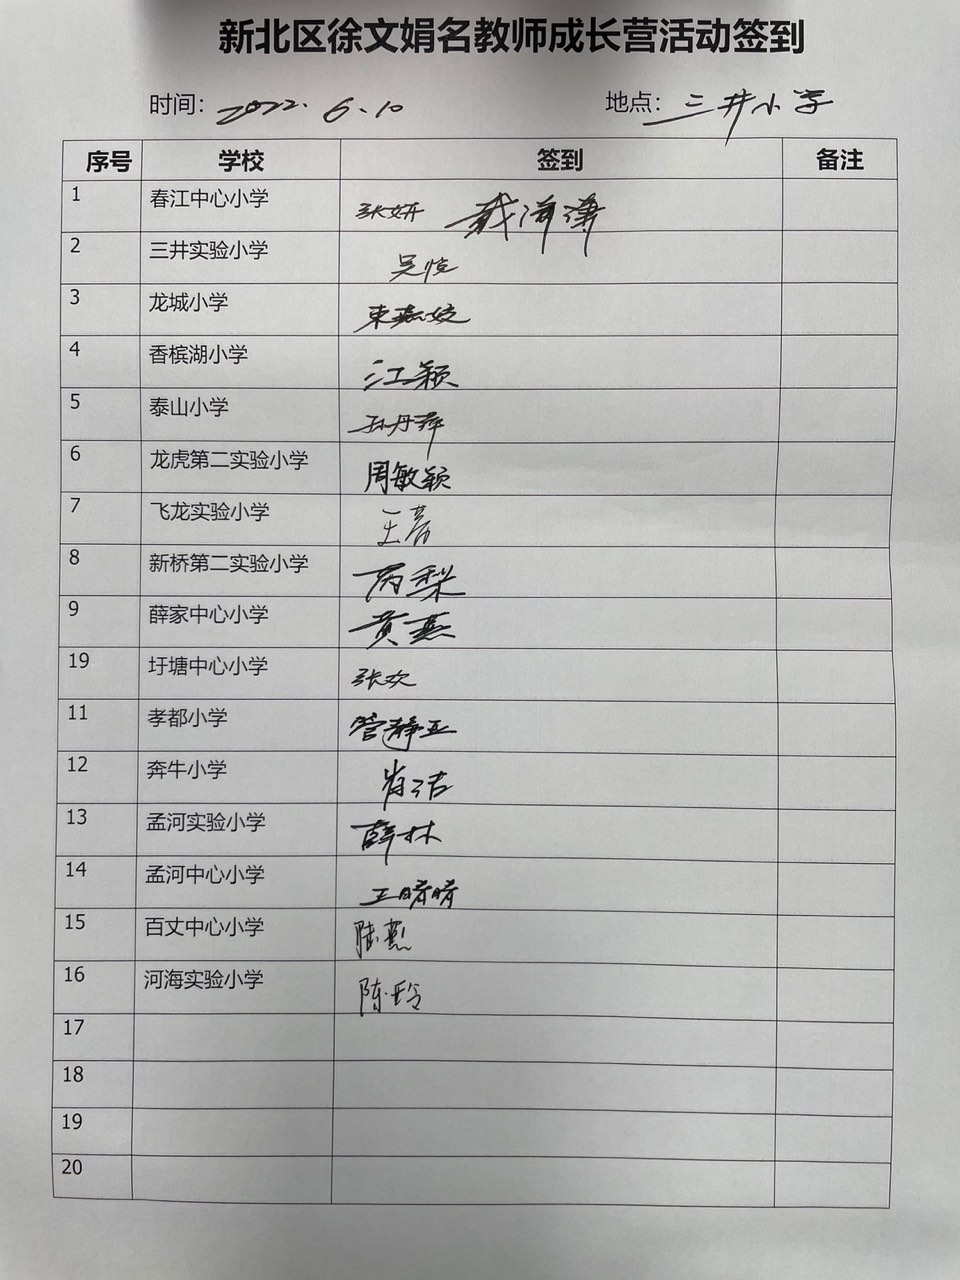 新北区徐文娟名教师成长营活动签到
时间: 2022.6.10 地点: 三井小学
序号 学校 签到 备注
1 春江中心小学 张妍 戴海潇
2 三井实验小学 吴恺
3 龙城小学 束嘉姣
4 香槟湖小学 江颖
5 泰山小学 孙丹萍
6 龙虎第二实验小学 周敏颖
7 飞龙实验小学 王芳
8 新桥第二实验小学 芮梨
9 薛家中心小学 黄燕
19 圩塘中心小学 张欢
11 孝都小学 管静亚
12 奔牛小学 肖洁
13 孟河实验小学 薛林
14 孟河中心小学 王晴晴
15 百丈中心小学 陆燕
16 河海实验小学 陈玲
17
18
19
20